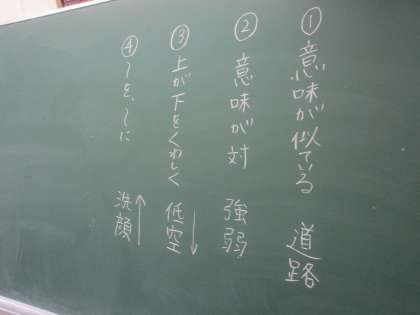 ① 意味が似ている 道路
② 意味が対 強弱
③ 上が下をくわしく 低空
④ 〜を、〜に 洗顔